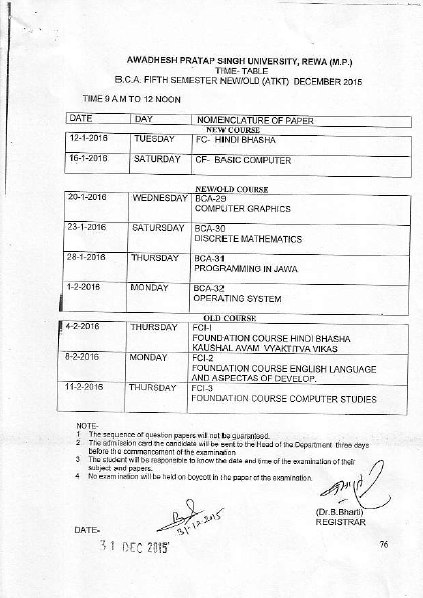 AWADHESH PRATAP SINGH UNIVERSITY, REWA (M.P.)
TIME-TABLE
B.C.A. FIFTH SEMESTER NEW/OLD (ATKT) DECEMBER 2015
TIME 9 A M TO 12 NOON
DATE DAY NOMENCLATURE OF PAPER
NEW COURSE
12-1-2016 TUESDAY FC- HINDI BHASHA
16-1-2016 SATURDAY CF- BASIC COMPUTER
NEW/OLD COURSE
20-1-2016 WEDNESDAY BCA-29
COMPUTER GRAPHICS
23-1-2016 SATURSDAY BCA-30
DISCRETE MATHEMATICS
28-1-2016 THURSDAY BCA-31
PROGRAMMING IN JAWA
1-2-2016 MONDAY BCA-32
OPERATING SYSTEM
OLD COURSE
4-2-2016 THURSDAY FCI-I
FOUNDATION COURSE HINDI BHASHA
KAUSHAL AVAM VYAKTITVA VIKAS
8-2-2016 MONDAY FCI-2
FOUNDATION COURSE ENGLISH LANGUAGE
AND ASPECTAS OF DEVELOP.
11-2-2016 THURSDAY FCI-3
FOUNDATION COURSE COMPUTER STUDIES
NOTE-
1 The sequence of question papers will not be guaranteed.
2 The admission card the candidate will be sent to the Head of the Department three days
before the commencement of the examination
3 The student will be responsible to know the date and time of the examination of their
subject and papers.
4 No exam ination will be held on boycott in the paper of the examination.
(Dr.B.Bharti)
REGISTRAR
31-12-2015
DATE-
31 DEC 2015
76